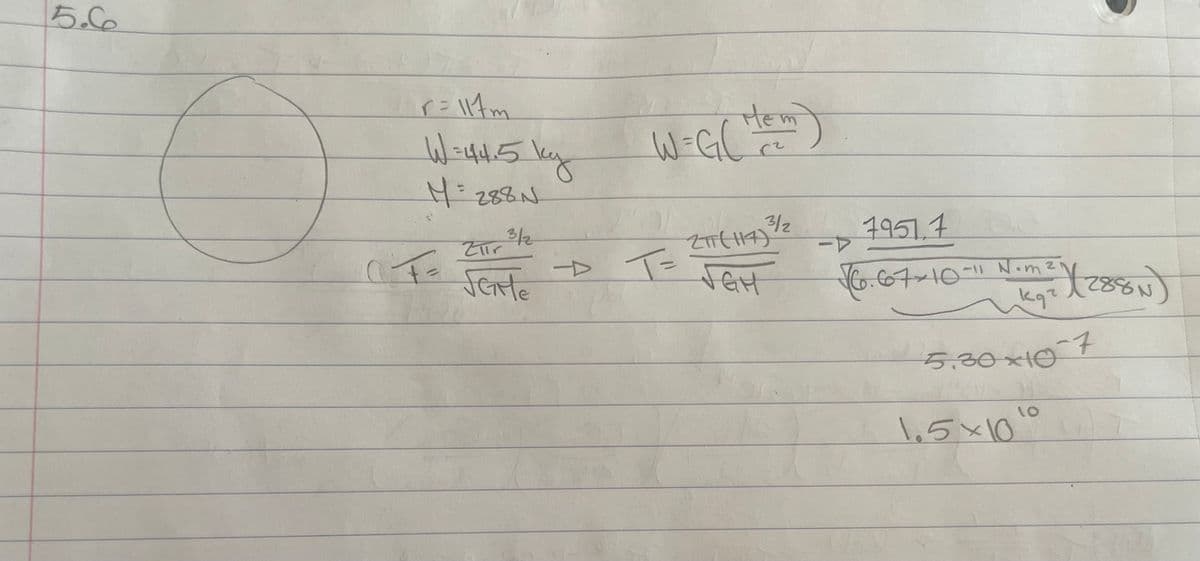 5.6
r = 117m
W = 44.5 kg    W = G( Mem / r² )
M = 288N
T = 2πr^3/2 / √GMe → T = 2π(117)^3/2 / √GM → 7951.7 / √(6.67×10^-11 N·m² / kg²)(288N)
5.30×10^-7
1.5×10^10